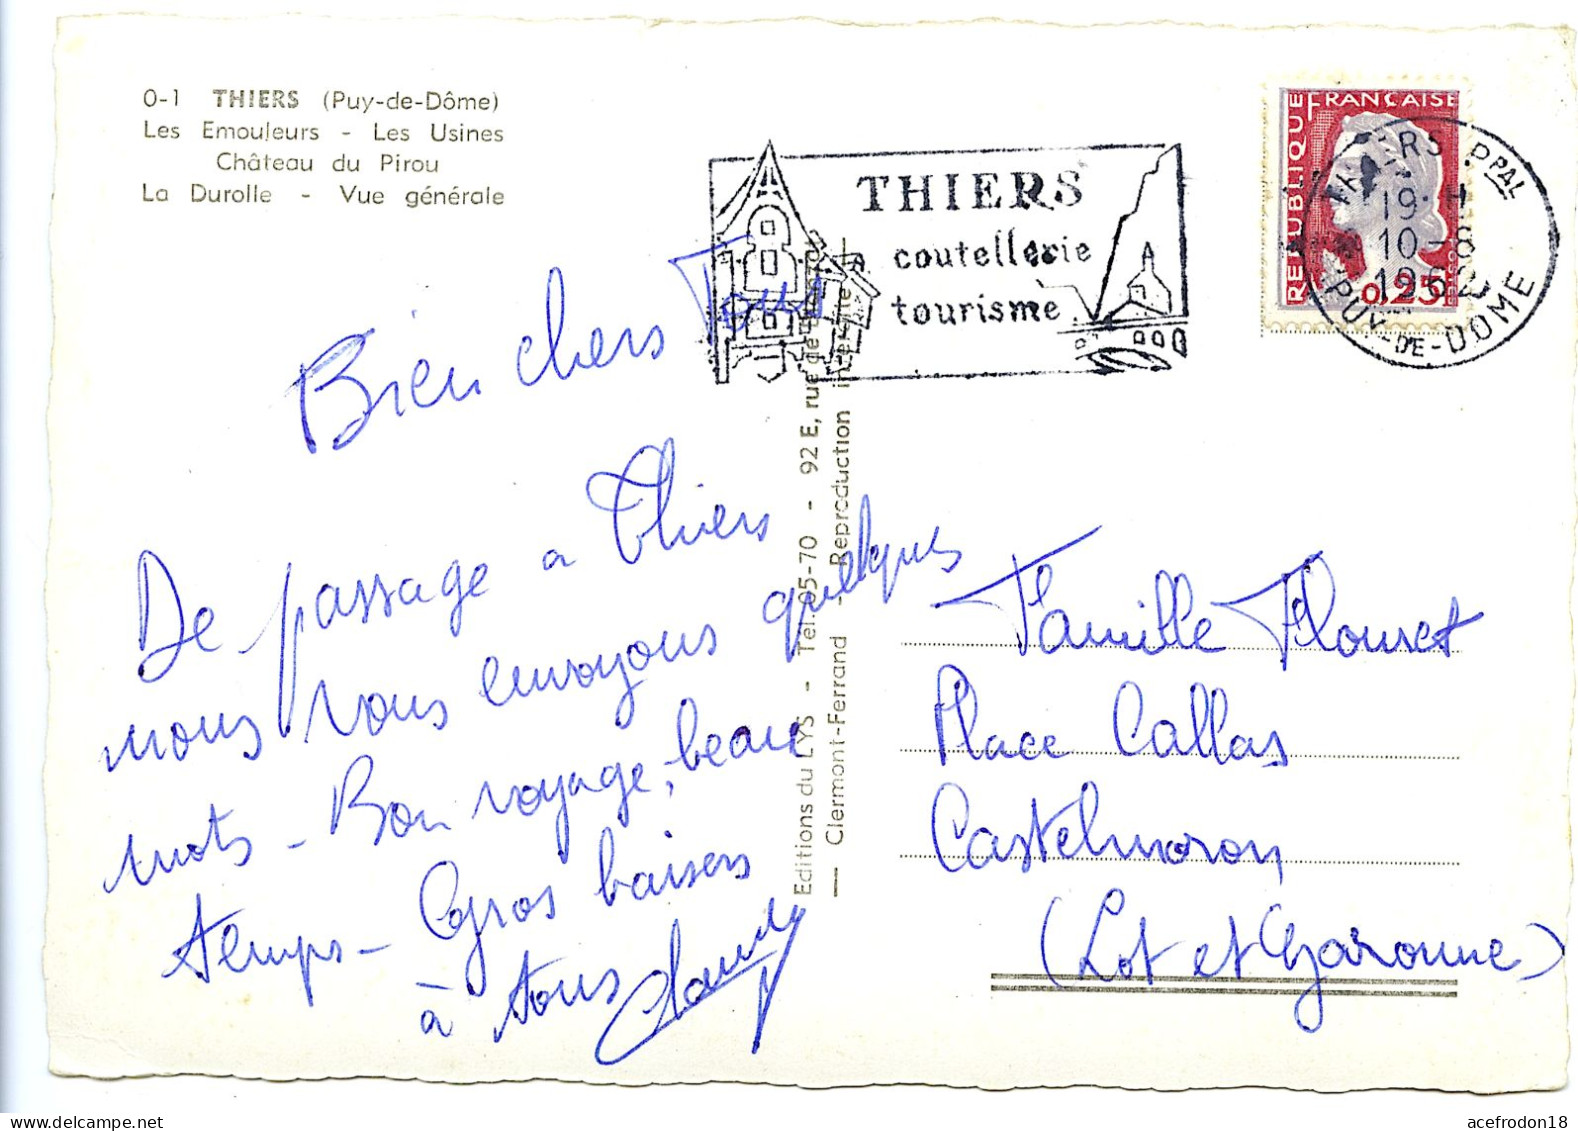 O-1 THIERS (Puy-de-Dôme)
Les Emouleurs - Les Usines
Château du Pirou
La Durolle - Vue générale
THIERS
coutellerie
tourisme
REPUBLIQUE FRANÇAISE
0,25
THIERS PPAL
19 H
10-8
1962
PUY-DE-DOME
Bien chers Tous
De passage a Thiers
nous vous envoyons quelques
mots - Bon voyage, beau
temps - Gros baisers
à tous
Editions du LYS - Tél. 05-70 - 92 E, rue de
— Clermont-Ferrand - Reproduction interdite
Famille Flouret
Place Callas
Castelmoron
(Lot et Garonne)
acefrodon18